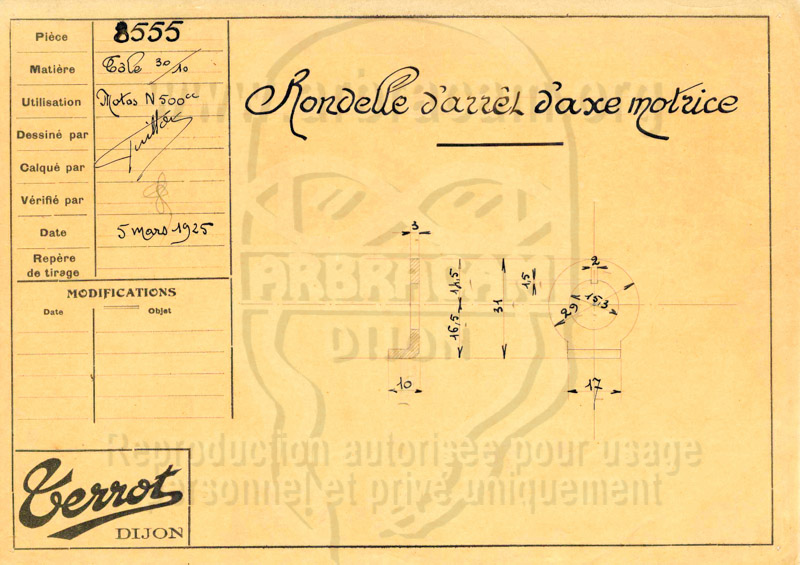 Pièce 8555
Matière Tôle 30/10
Utilisation Motos N 500cc
Dessiné par
Calqué par
Vérifié par
Date 5 mars 1925
Repère
de tirage
MODIFICATIONS
Date Objet
Rondelle d'arrêt d'axe motrice
3
2
14,5
1,5
31
16,5
15,3
29
10
17
ARBRACAM
DIJON
Reproduction autorisée pour usage
personnel et privé uniquement
Terrot
DIJON